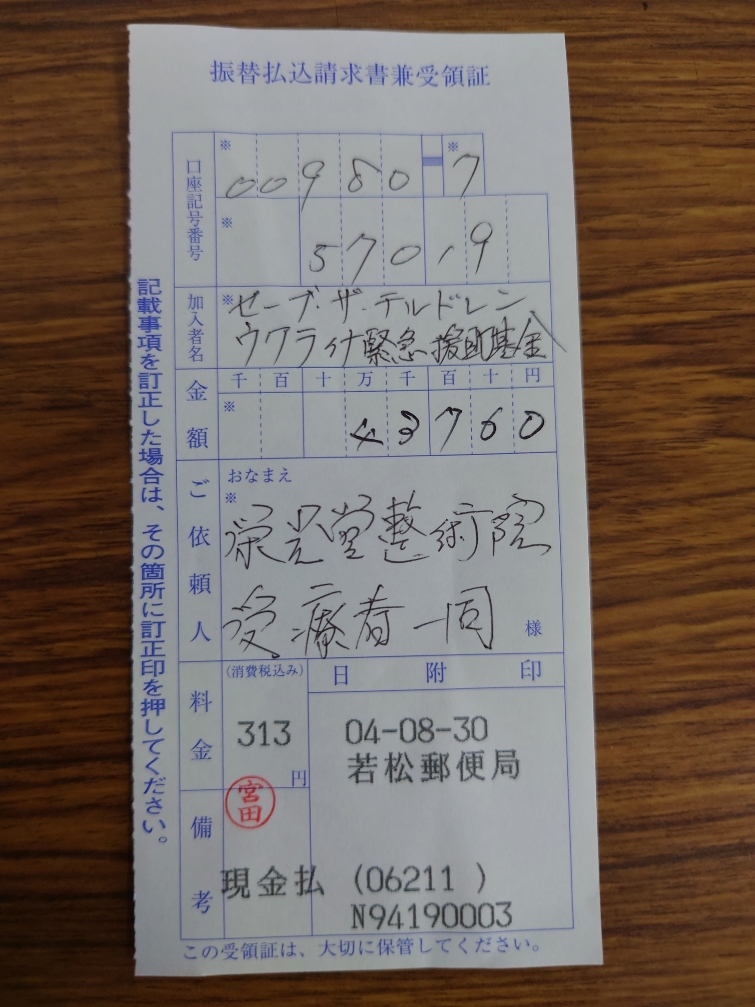 振替払込請求書兼受領証
口座記号番号
※ 00980 - ※ 7
※ 57019
加入者名
※ セーブ・ザ・チルドレン
ウクライナ緊急援助基金
金額
千 百 十 万 千 百 十 円
※ 43760
ご依頼人
おなまえ
※
栄光堂整術院
受療者一同 様
料金
(消費税込み)
313
円
日 附 印
04-08-30
若松郵便局
宮田
備考
現金払 (06211 )
N94190003
この受領証は、大切に保管してください。
記載事項を訂正した場合は、その箇所に訂正印を押してください。